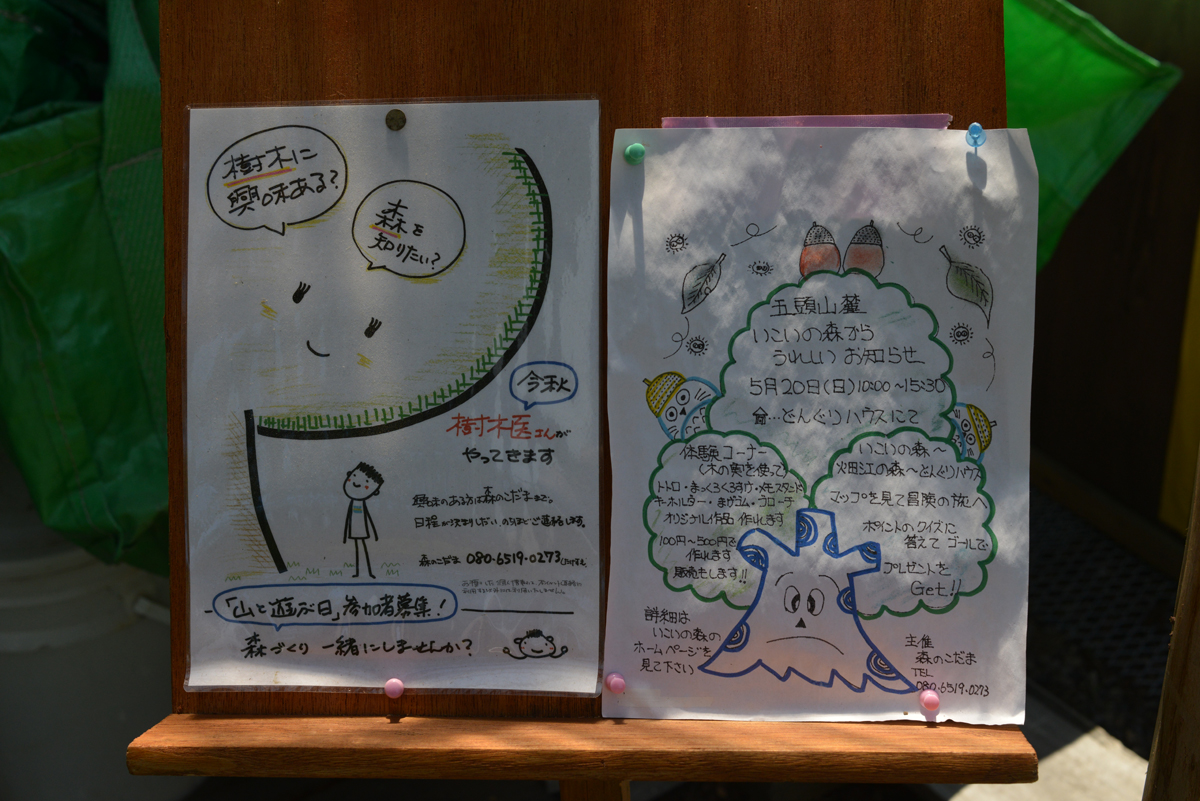 樹木に
興味ある?
森を
知りたい?
今秋
樹木医さんが
やってきます
興味のある方は森のこだままで。
日程が決まりしだい、のちほどご連絡します。
森のこだま 080-6519-0273
「山と遊ぶ日」参加者募集!
森づくり 一緒にしませんか?
五頭山麓
いこいの森から
うれしい お知らせ
5月20日(日)10:00~15:30
会…どんぐりハウスにて
体験コーナー
(木の実を使って)
トトロ・まっくろくろすけ・メモスタンド
キーホルダー・まがゴム・ブローチ
オリジナル作品 作れます
100円~500円で
作れます
販売もします!!
いこいの森~
火田江の森~どんぐりハウス
マップを見て冒険の旅へ
ポイントのクイズに
答えて ゴールで
プレゼントを
Get!!
詳細は
いこいの森の
ホームページを
見て下さい
主催
森のこだま
TEL
080-6519-0273